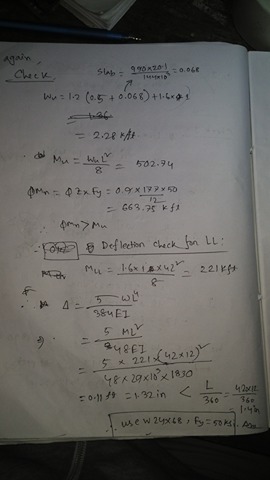 again,
Check
Slab = 990×20.1 / 144×10³ = 0.068
Wu = 1.2 (0.5 + 0.068) + 1.6×1
= 2.28 k/ft
Mu = WuL² / 8 = 502.74
φMn = φ Zx Fy = 0.9 × 177 × 50 / 12
= 663.75 k ft
φMn > Mu
Deflection check for LL:
MLL = 1.6×1×42² / 8 = 221 k ft
Δ = 5 WL⁴ / 384EI
= 5 ML² / 48EI
= 5 × 221 × (42×12)² / 48 × 29×10³ × 1830
= 0.11 ft = 1.32 in < L / 360 = 42×12 / 360
= 1.4 in
use W24×68, Fy = 50 ksi